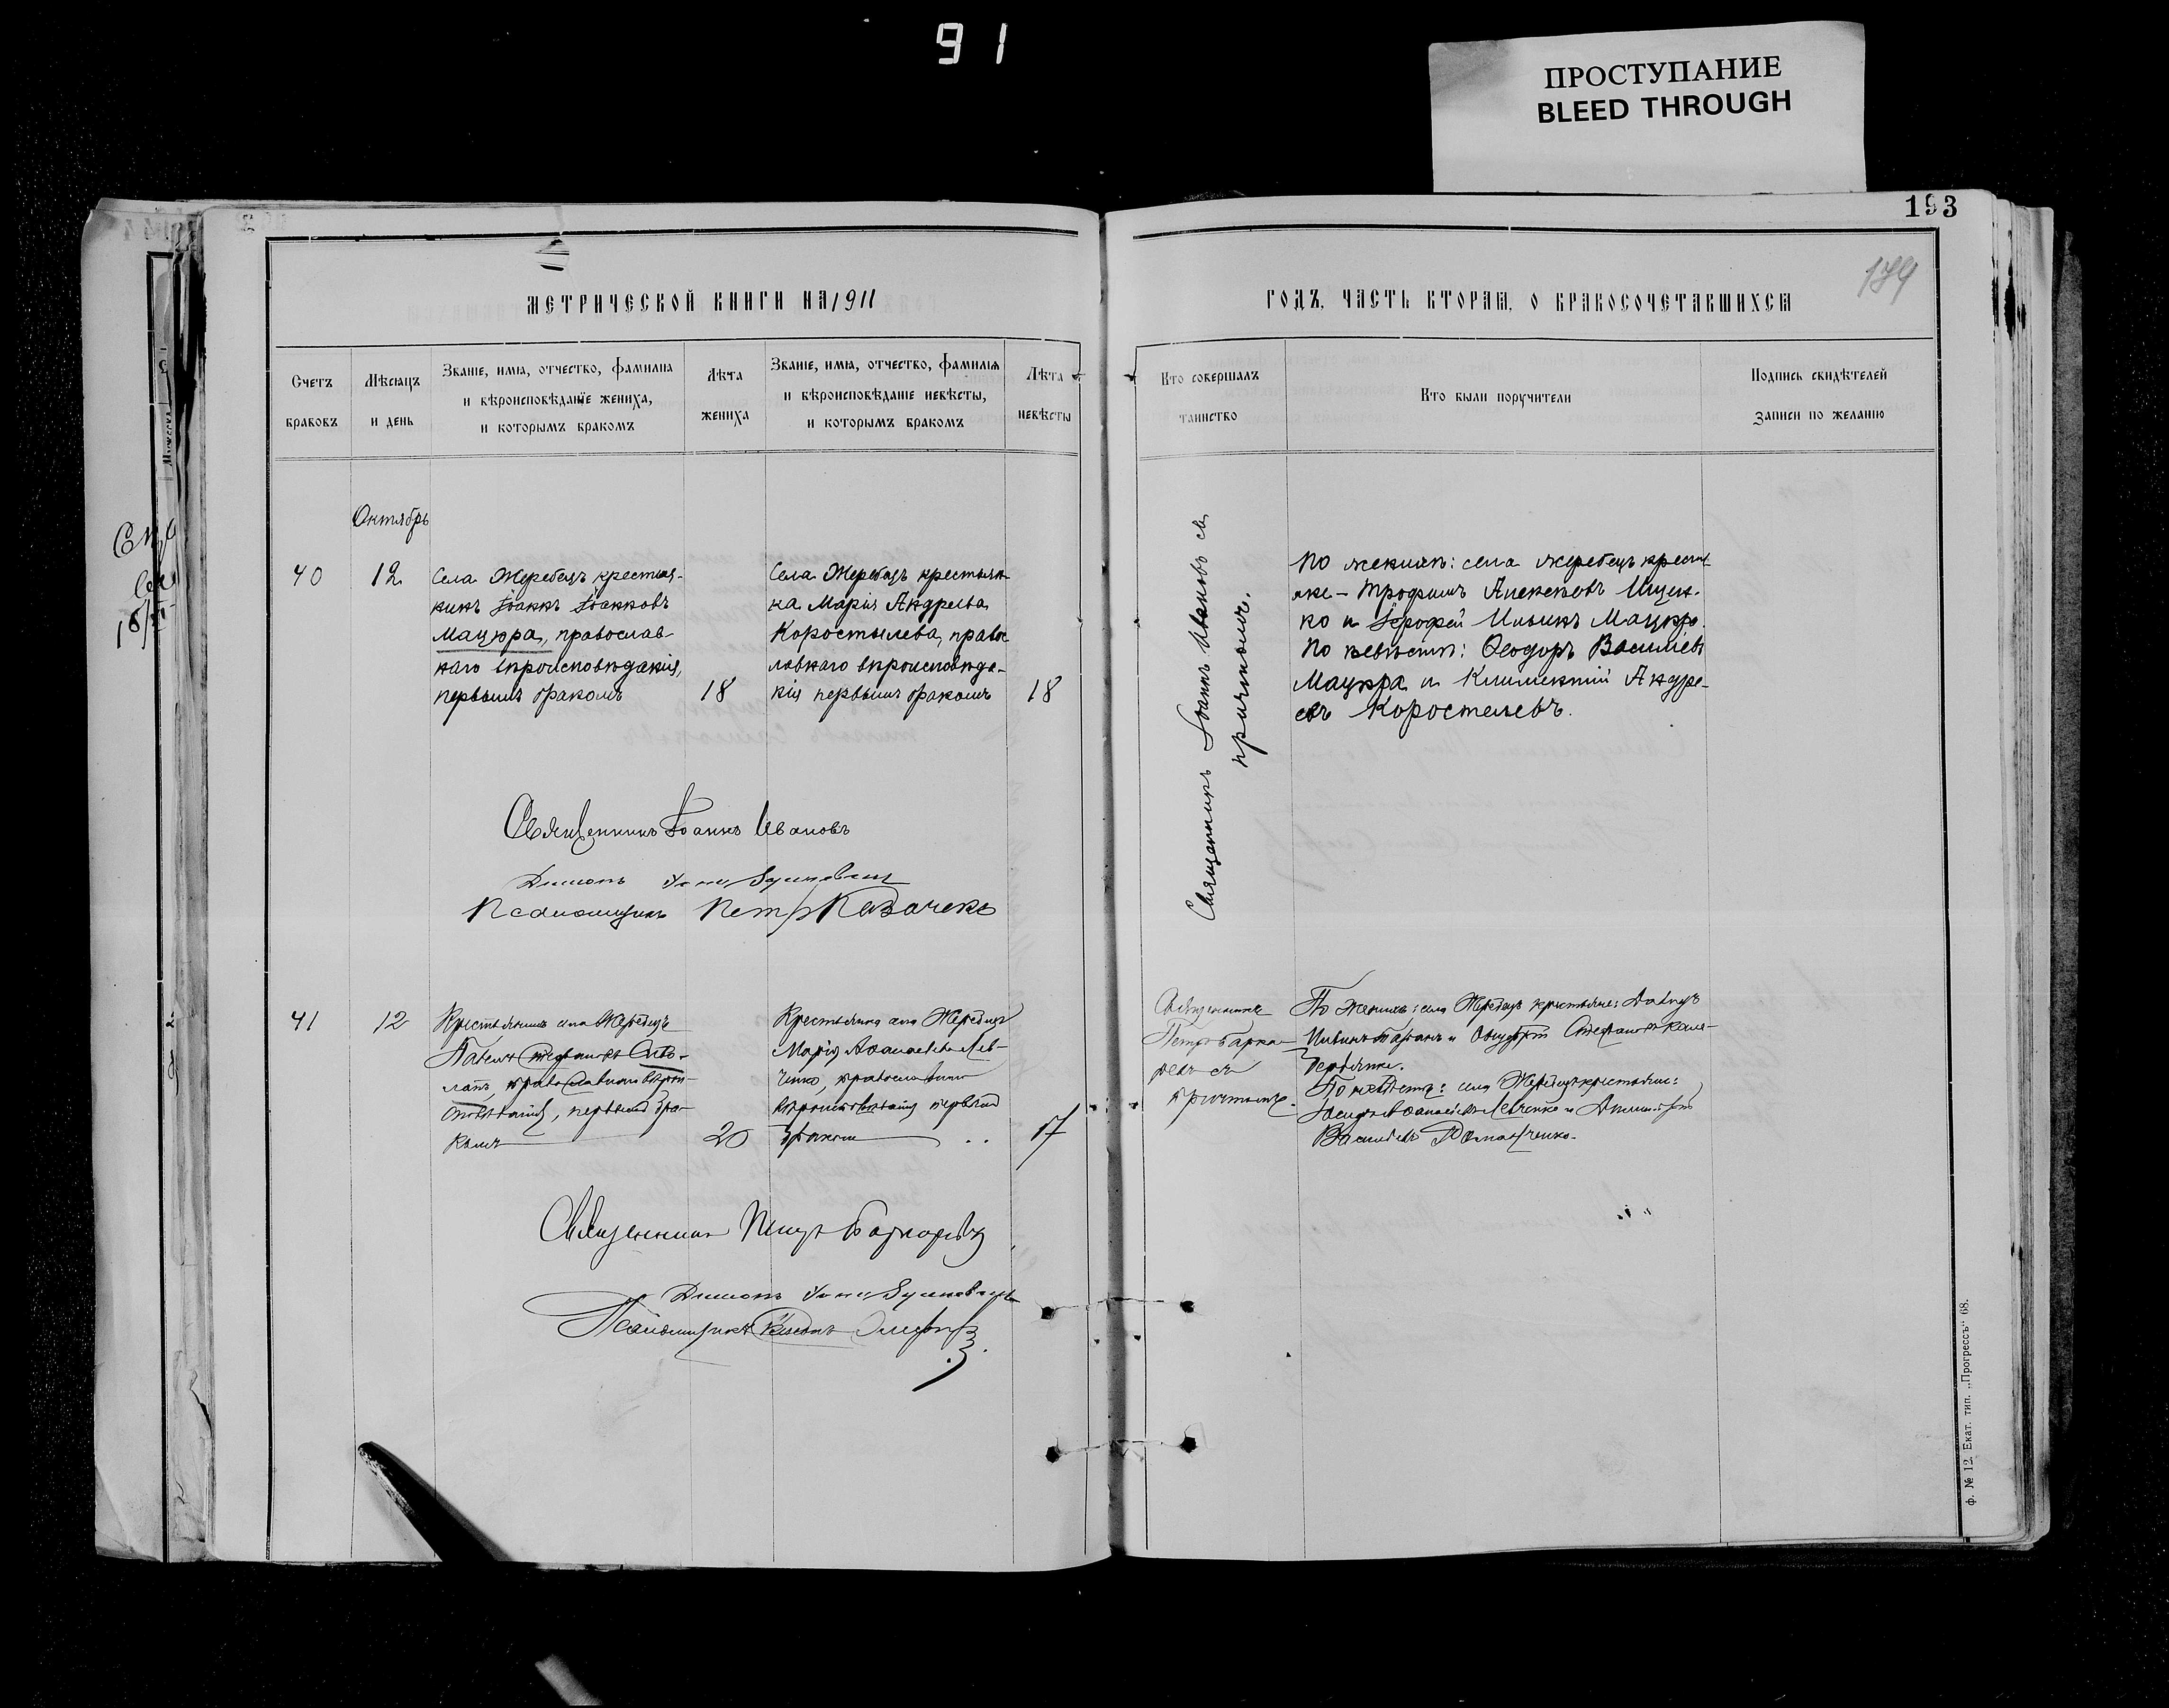 91
ПРОСТУПАНИЕ
BLEED THROUGH
193
179
МЕТРИЧЕСКОЙ КНИГИ НА 1911
ГОДЪ, ЧАСТЬ ВТОРАЯ, О БРАКОСОЧЕТАВШИХСЯ
Счетъ
браковъ
Мѣсяцъ
и день
Званіе, имя, отчество, фамилія
и вѣроисповѣданіе жениха,
и которымъ бракомъ
Лѣта
жениха
Званіе, имя, отчество, фамилія
и вѣроисповѣданіе невѣсты,
и которымъ бракомъ
Лѣта
невѣсты
Кто совершалъ
таинство
Кто были поручители
Подпись свидѣтелей
записи по желанію
Октябрь
40
12
Села Жеребецъ крестья-
нинъ Іоаннъ Іоанновъ
Мацюра, православ-
наго вѣроисповѣданія,
первымъ бракомъ
18
Села Жеребецъ крестьян-
ка Марія Андреева
Коростылева, правос
лавнаго вѣроисповѣда-
нія первымъ бракомъ
18
Священникъ Іоаннъ Ивановъ съ
причтомъ.
По женихѣ: села Жеребецъ крестья
не - Трофимъ Алексѣевъ Ищен-
ко и Іерофей Ильинъ Мацюра.
По невѣстѣ: Ѳеодоръ Василіевъ
Мацюра и Климентій Андре-
евъ Коростелевъ.
Священникъ Іоаннъ Ивановъ
Діаконъ
Псаломщикъ Петръ Казачекъ
41
12
Крестьянинъ села Жеребецъ
Павелъ Стефановъ Сиво-
лапъ, православнаго вѣрои-
сповѣданія, первымъ бра-
комъ
20
Крестьянка села Жеребецъ
Марія Аѳанасіева Лев-
ченко, православнаго
вѣроисповѣданія первымъ
бракомъ
17
Священникъ
Петръ
съ
причтомъ.
По женихѣ: села Жеребецъ крестьяне: Давидъ
Стефановъ
По невѣстѣ: села Жеребецъ крестьяне:
Аѳанасіевъ Левченко и Димитрій
Василіевъ
Священникъ Петръ
Діаконъ
Псаломщикъ
Ф. № 12. Екат. тип. „Прогрессъ“ 68.